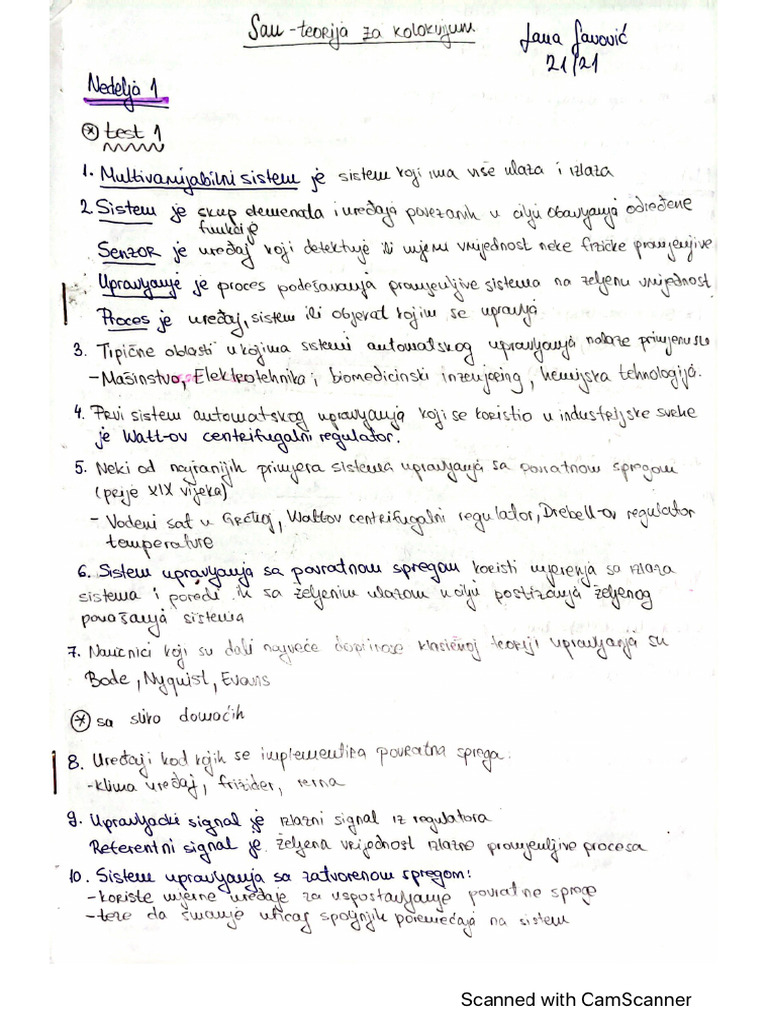 Sau - teorija za kolokvijum
Jana Savović
21/21
Nedelja 1
* test 1
1. Multivarijabilni sistem je sistem koji ima više ulaza i izlaza
2. Sistem je skup elemenata i uređaja povezanih u cilju obavljanja određene
funkcije
Senzor je uređaj koji detektuje ili mjeri vrijednost neke fizičke promjenljive
Upravljanje je proces podešavanja promjenljive sistema na željenu vrijednost
Proces je uređaj, sistem ili objekat kojim se upravlja
3. Tipične oblasti u kojima sistemi automatskog upravljanja nalaze primjenu su
- Mašinstvo, Elektrotehnika i biomedicinski inženjering, hemijska tehnologija.
4. Prvi sistem automatskog upravljanja koji se koristio u industrijske svrhe
je Watt-ov centrifugalni regulator.
5. Neki od najranijih primjera sistema upravljanja sa povratnom spregom
(prije XIX vijeka)
- Vodeni sat u Grčkoj, Wattov centrifugalni regulator, Drebell-ov regulator
temperature
6. Sistem upravljanja sa povratnom spregom koristi mjerenja sa izlaza
sistema i poredi ih sa željenim ulazom u cilju postizanja željenog
ponašanja sistema
7. Naučnici koji su dali najveće doprinose klasičnoj teoriji upravljanja su
Bode, Nyquist, Evans
* sa sliko domaćih
8. Uređaji kod kojih se implementira povratna sprega:
- klima uređaj, frižider, rerna
9. Upravljački signal je izlazni signal iz regulatora
Referentni signal je željena vrijednost izlazne promjenljive procesa
10. Sistem upravljanja sa zatvorenom spregom:
- koriste mjerne uređaje za uspostavljanje povratne sprege
- teže da smanje uticaj spoljnjih poremećaja na sistem
Scanned with CamScanner